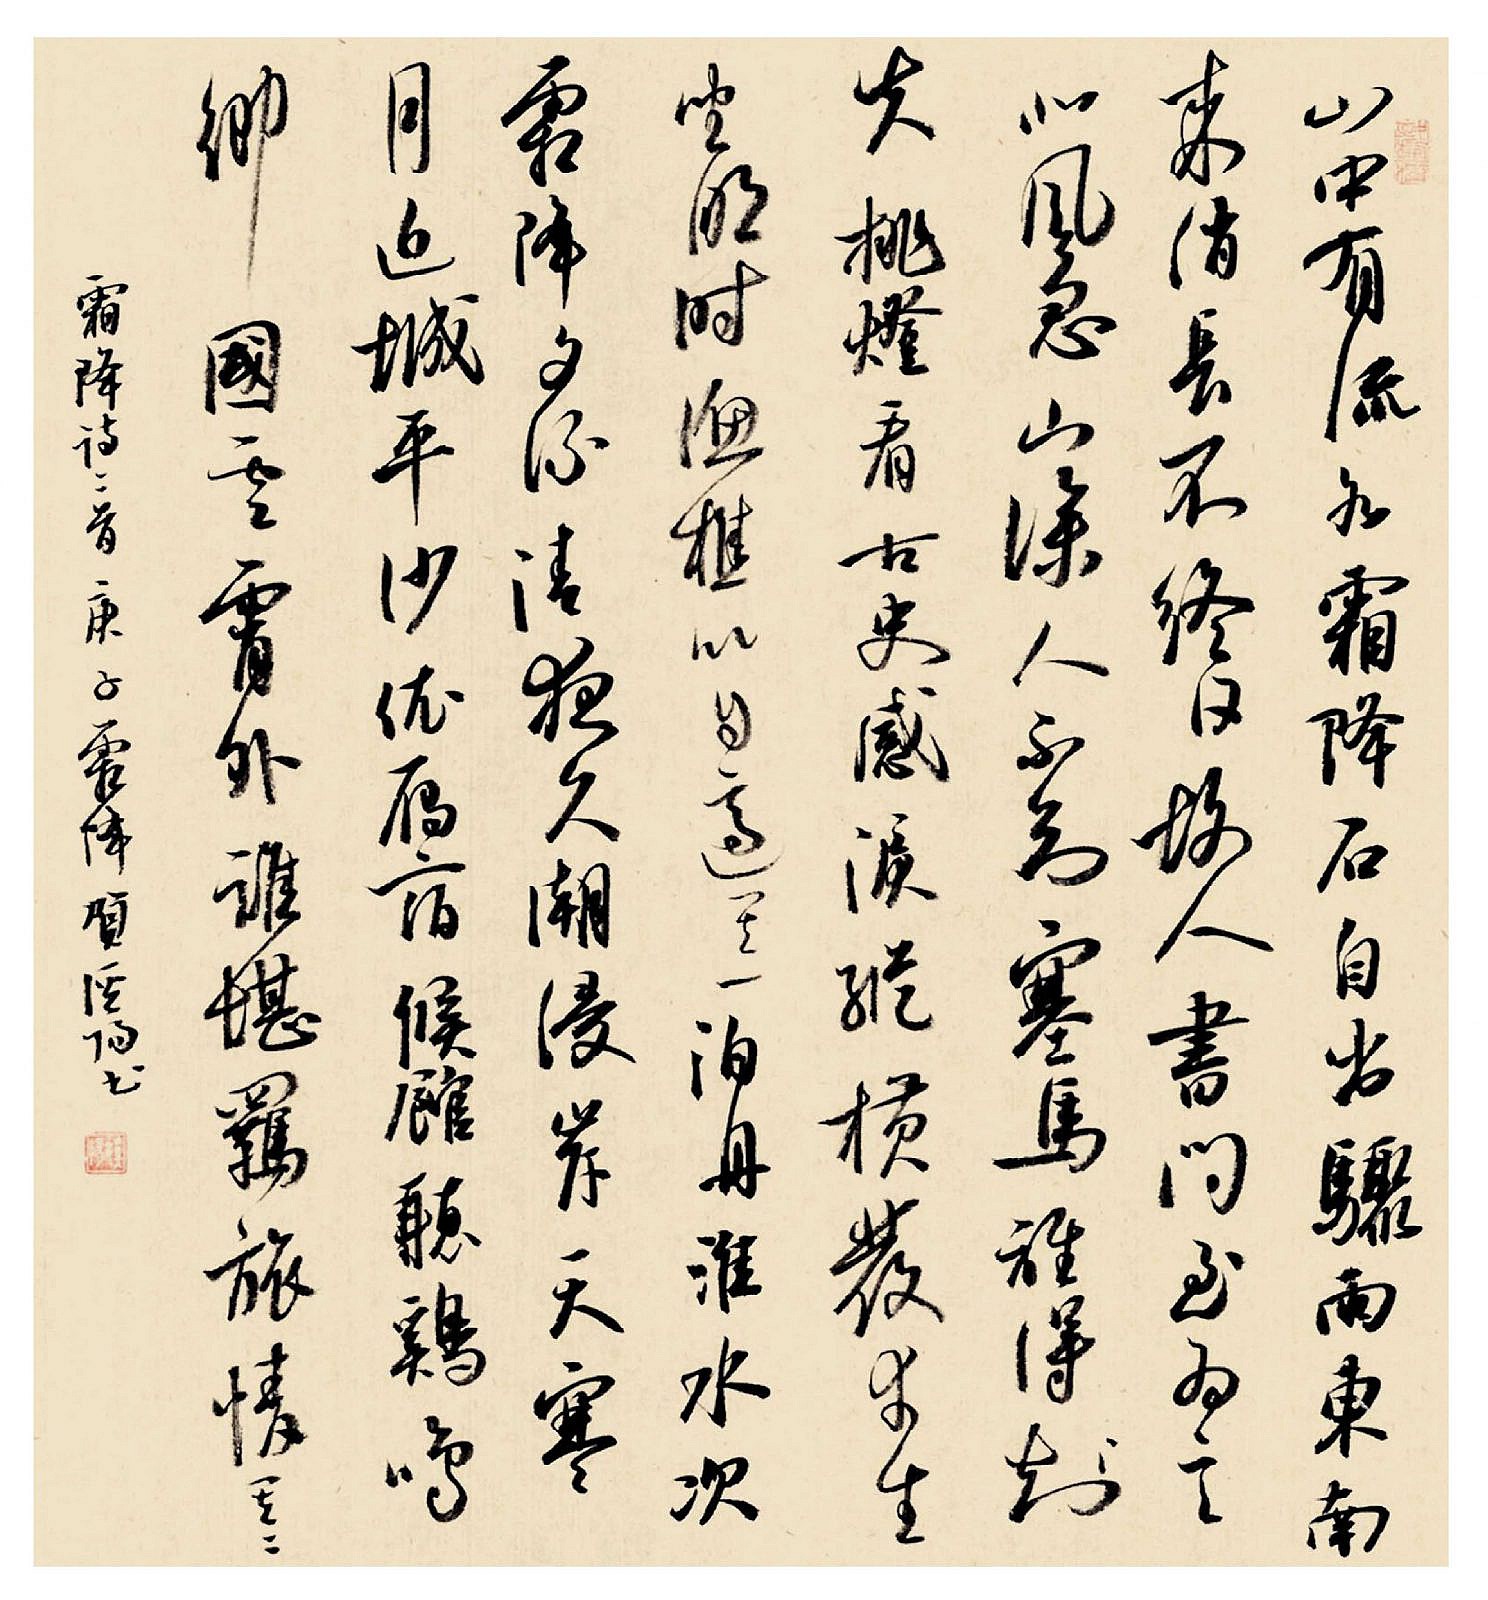 山中有流水霜降石自出驟雨東南
来消長不終日故人書問至為言
北風急山深人不知塞馬誰得
失挑燈看古史感淚縱橫發幸生
聖明時漁樵以自適其一泊舟淮水次
霜降夕流清夜久潮浸岸天寒
月近城平沙依雁宿候館聽鷄鳴
鄉國雲霄外誰堪羈旅情其二
霜降詩二首庚子霜降書